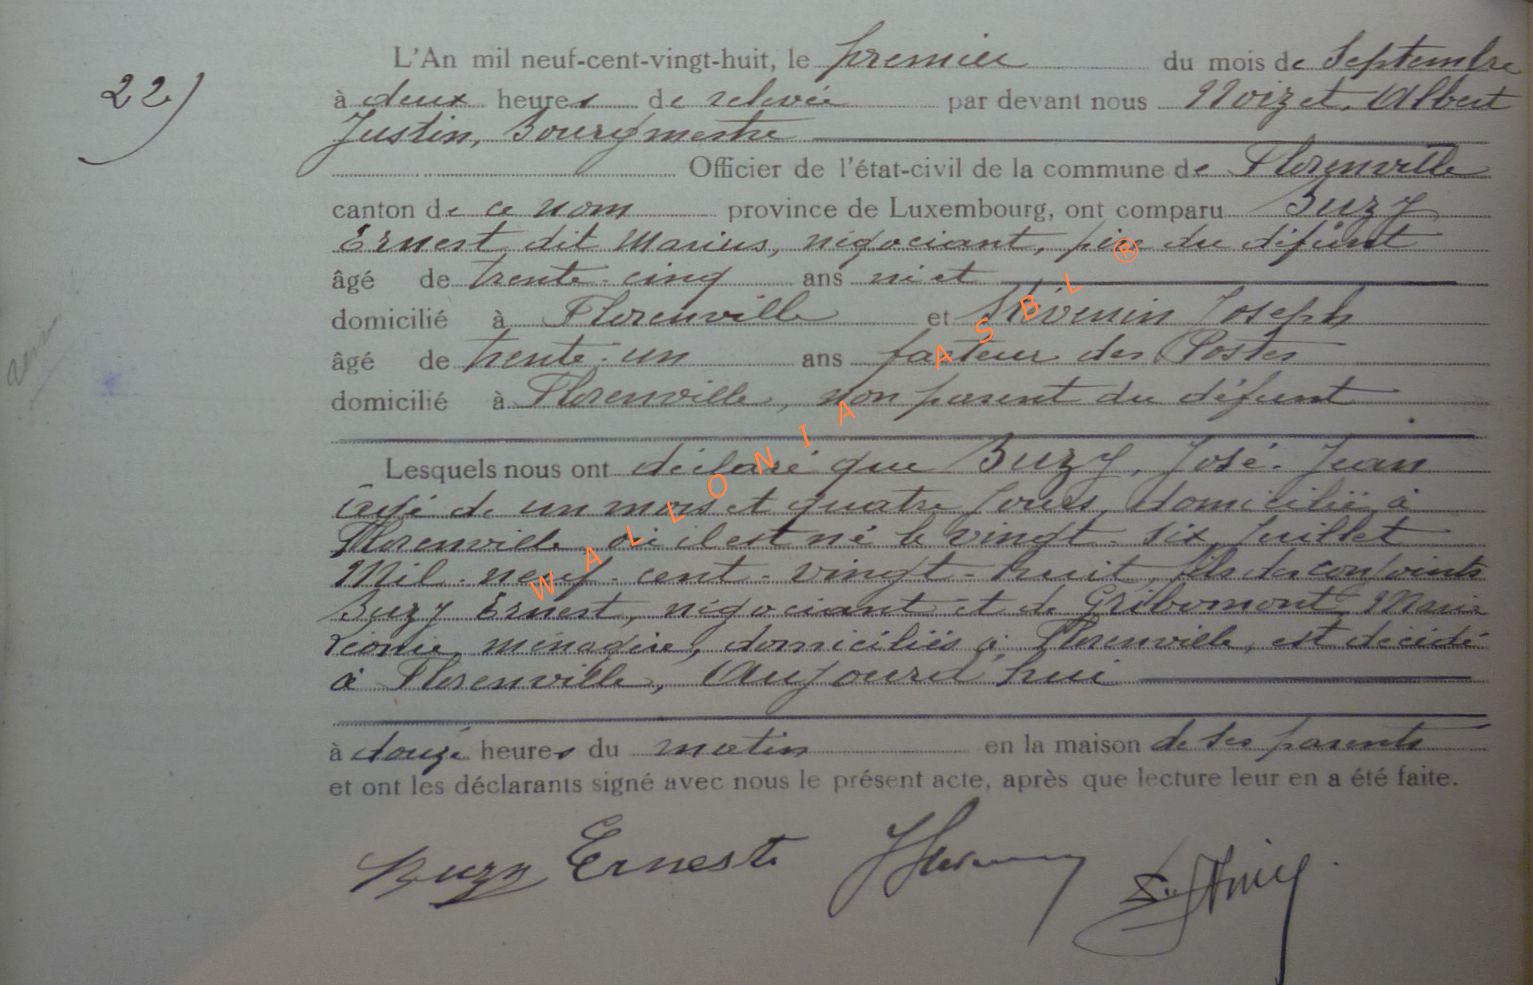 22)
L'An mil neuf-cent-vingt-huit, le premier du mois de Septembre
à deux heures de relevée par devant nous Noizet, Albert
Justin, Bourgmestre
Officier de l'état-civil de la commune de Florenville
canton de ce nom province de Luxembourg, ont comparu Buzy
Ernest dit Marius, négociant, père du défunt
âgé de trente-cinq ans
domicilié à Florenville et Thévenin Joseph
âgé de trente-un ans facteur des Postes
domicilié à Florenville, non parent du défunt
Lesquels nous ont déclaré que Buzy, José-Juan
âgé de un mois et quatre jours, domicilié à
Florenville où il est né le vingt-six Juillet
Mil-neuf-cent-vingt-huit, fils des conjoints
Buzy Ernest, négociant et de Gribomont Marie
Léonie, ménagère, domiciliés à Florenville, est décédé
à Florenville, Aujourd'hui
à douze heures du matin en la maison de ses parents
et ont les déclarants signé avec nous le présent acte, après que lecture leur en a été faite.
Buzy Ernest
WALLONIA ASBL ®